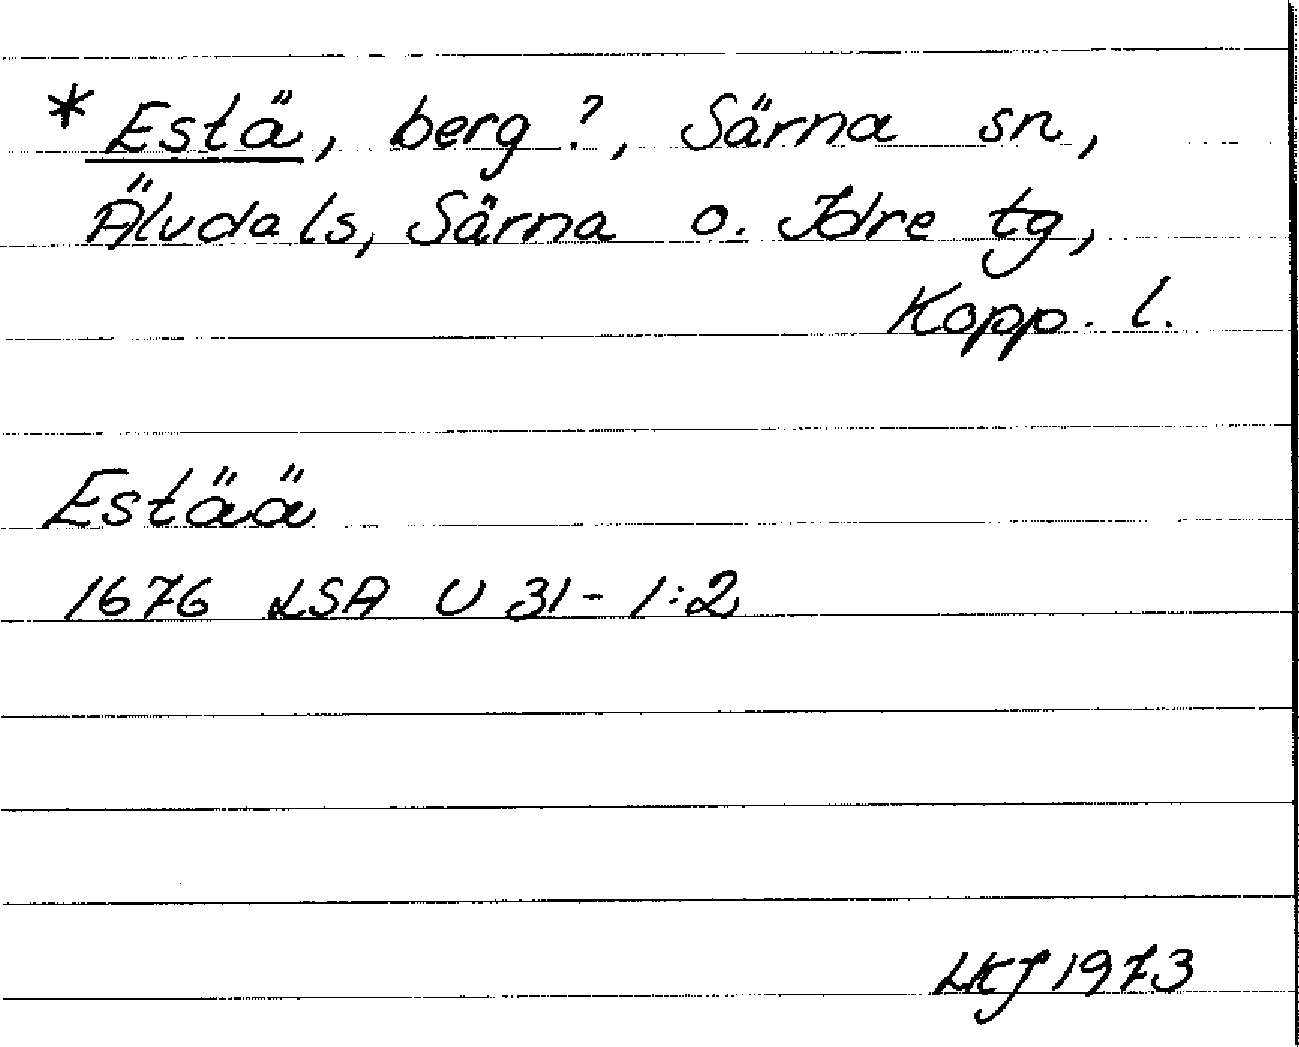 * Estä, berg?, Särna sn,
Älvdals, Särna o. Idre tg,
Kopp. l.
Estää
1676 LSA U 31-1:2
LKJ 1973